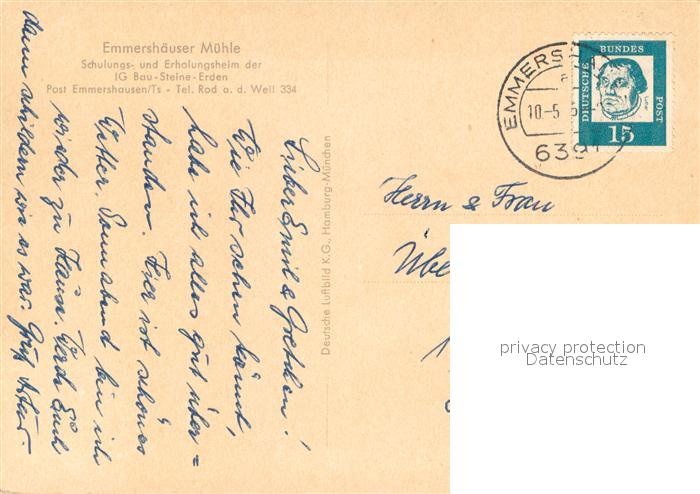 Emmershäuser Mühle
Schulungs- und Erholungsheim der
IG Bau-Steine-Erden
Post Emmershausen/Ts - Tel. Rod a. d. Weil 334
Lieber Emil & Gretchen!
Wie Ihr sehen könnt,
habe ich alles gut über=
standen. Hier ist schönes
Wetter. Sonnabend bin ich
wieder zu Hause. Werde Euch
dann schildern wie es war. Gruß
Deutsche Luftbild K.G., Hamburg-München
EMMERS
10.-5
639
DEUTSCHE BUNDES POST
Luther
15
Herrn & Frau
privacy protection
Datenschutz